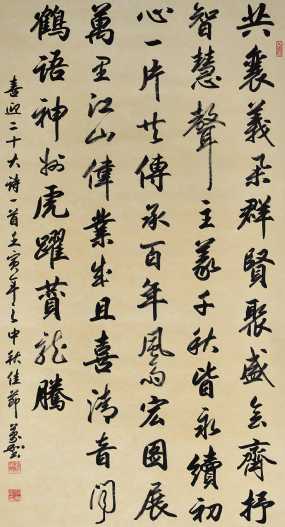 共襄義举群賢聚盛会齊抒
智慧聲主義千秋皆永續初
心一片共傳承百年風雨宏圖展
萬里江山偉業成且喜清音聞
鶴語神州虎躍贊龍騰
喜迎二十大诗一首壬寅年之中秋佳節